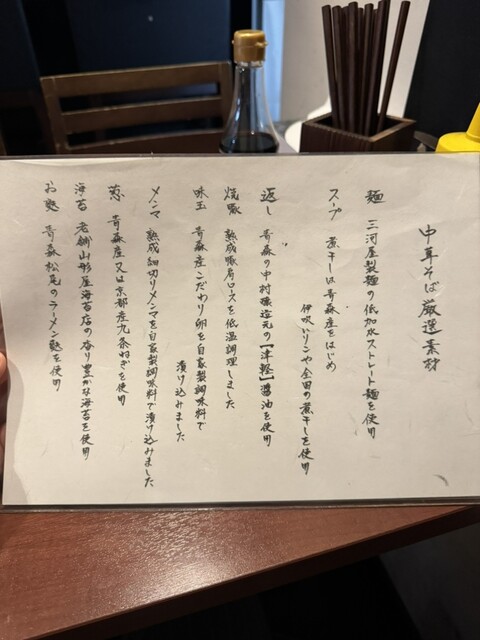 中華そば厳選素材
麺 三河屋製麺の低加水ストレート麺を使用
スープ 煮干しは青森産をはじめ
伊吹いりこや全国の煮干しを使用
返し 青森の中村醸造元の【津軽】醤油を使用
焼豚 熟成豚肩ロースを低温調理しました
味玉 青森産こだわり卵を自家製調味料で
漬け込みました
メンマ 熟成細切りメンマを自家製調味料で漬け込みました
葱 青森産又は京都産九条ねぎを使用
海苔 老舗山形屋海苔店の香り豊かな海苔を使用
お麩 青森松尾のラーメン麩を使用